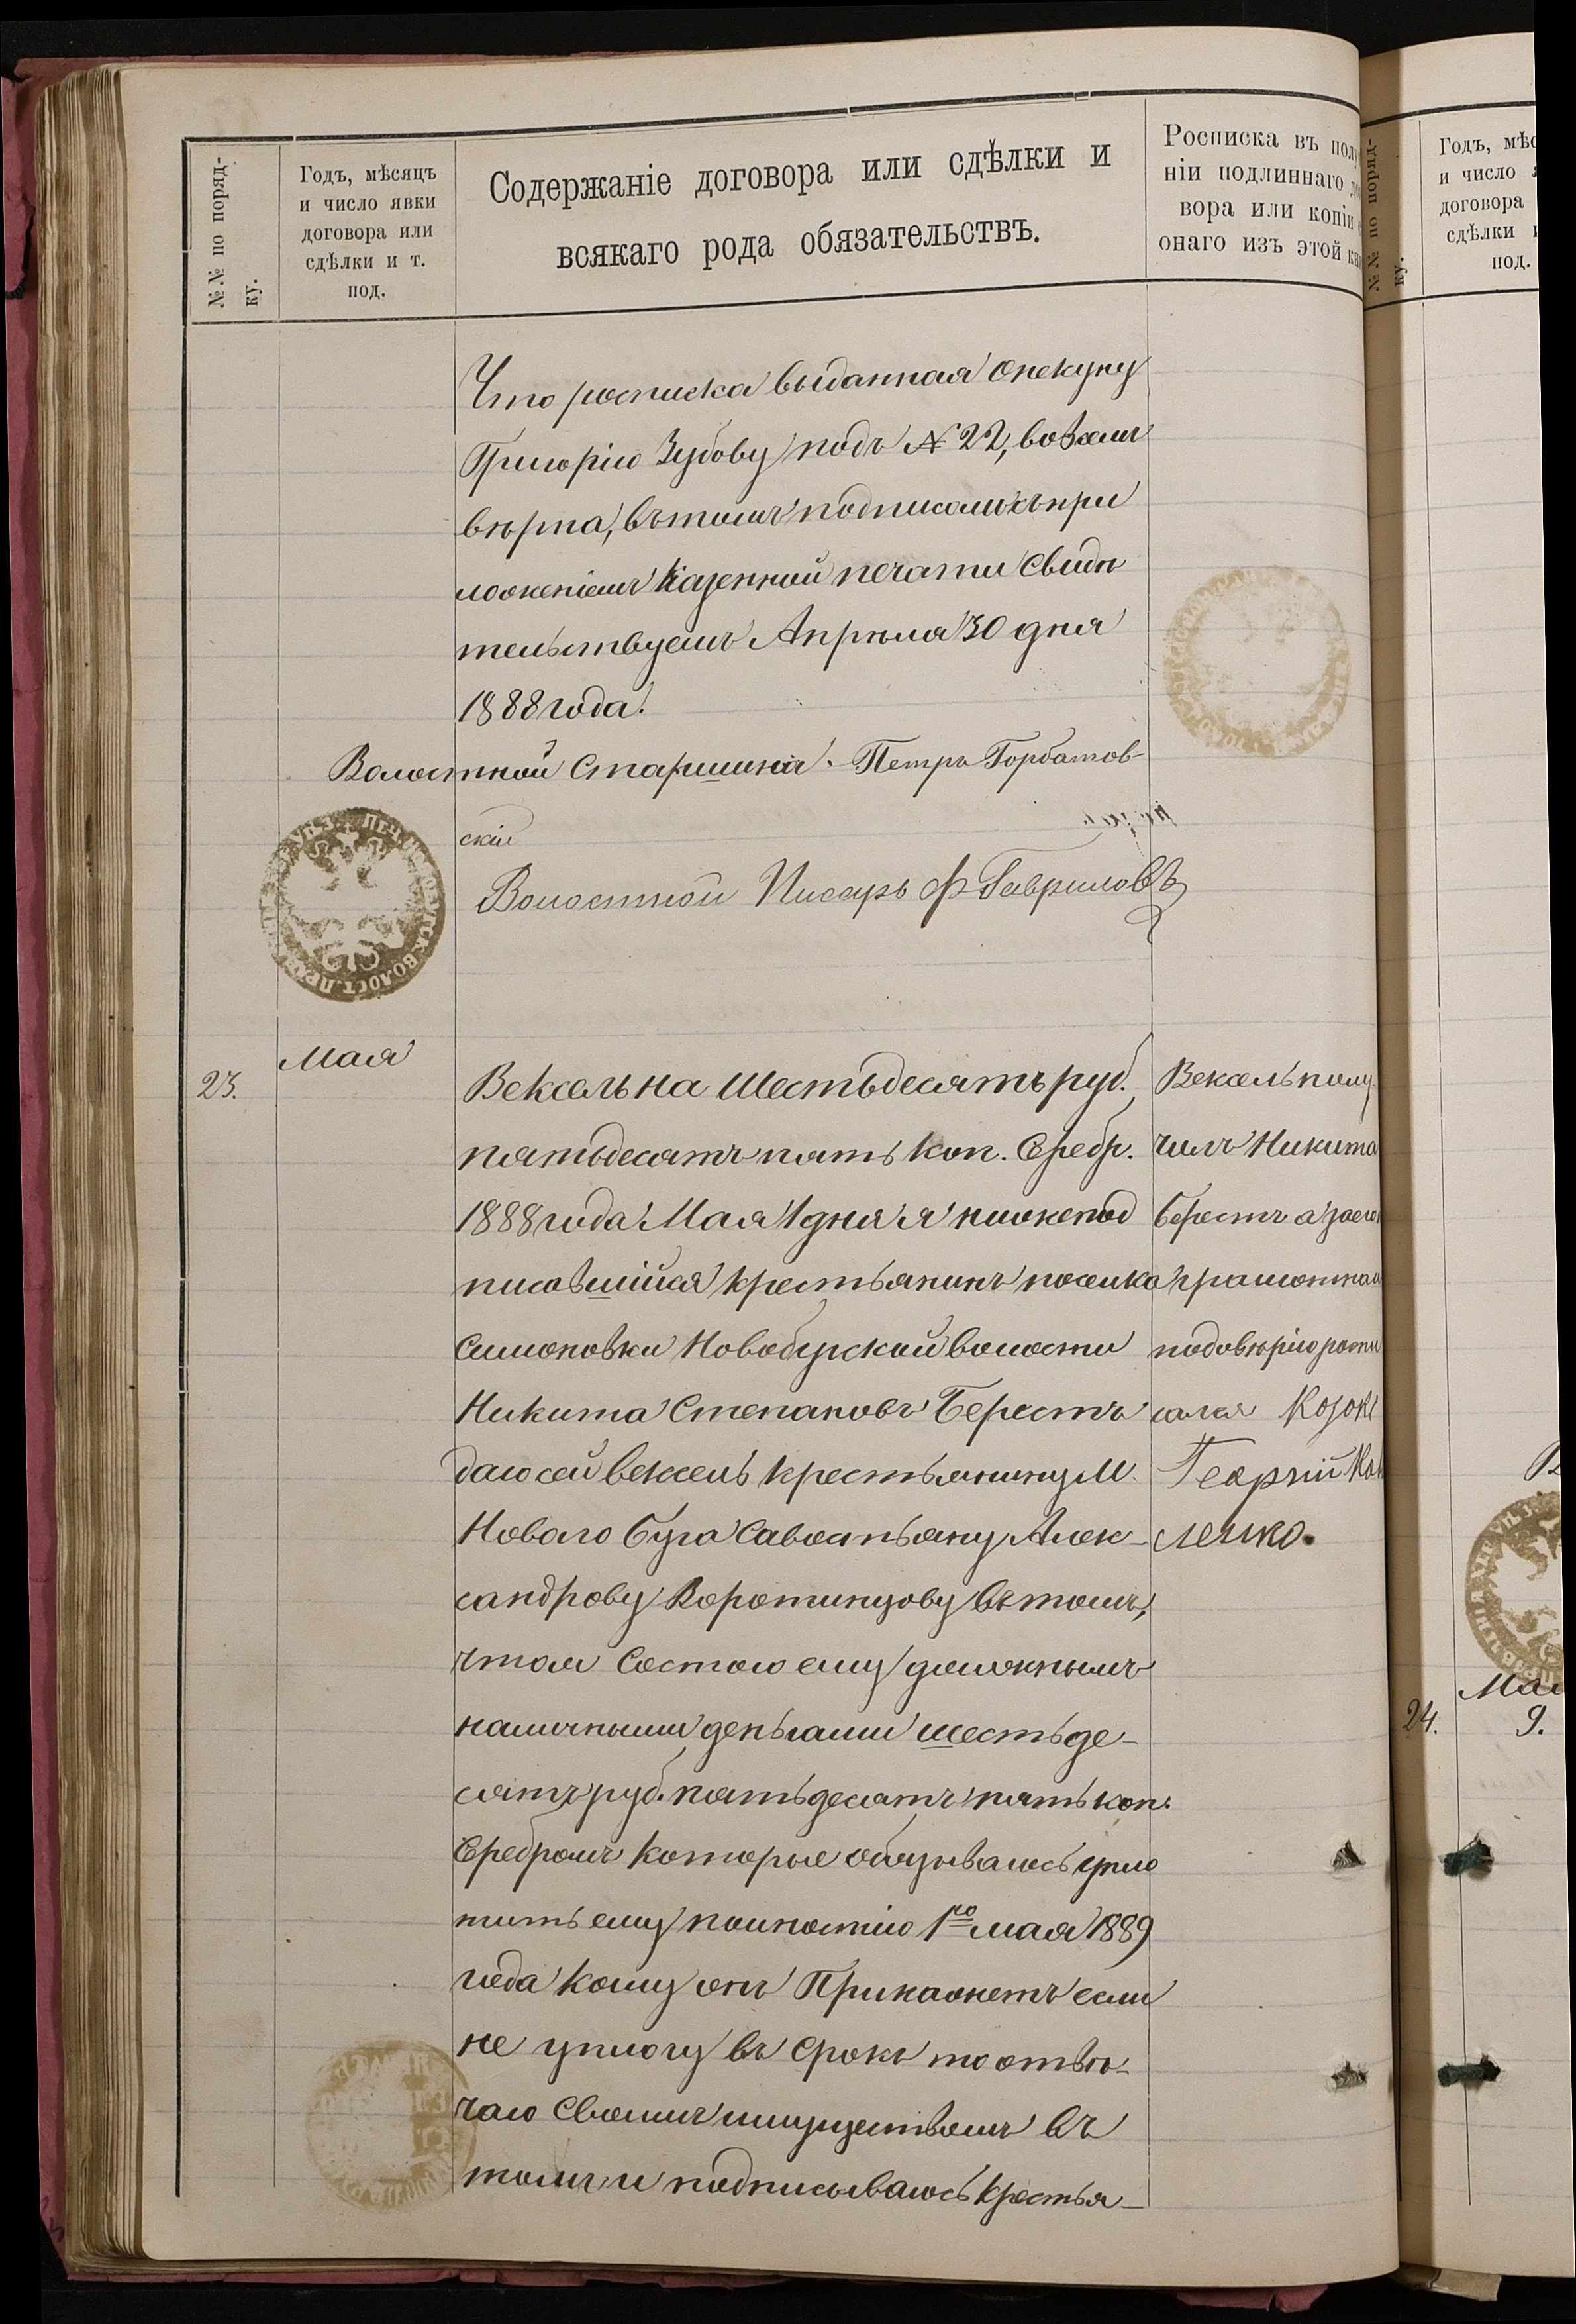 №№ по поряд-
ку.
Годъ, мѣсяцъ
и число явки
договора или
сдѣлки и т.
под.
Содержаніе договора или сдѣлки и
всякаго рода обязательствъ.
Росписка въ полу
ніи подлиннаго до
вора или копіи
онаго изъ этой кн
Что росписка выданная опекуну
Григорію Зубову подъ № 22,
вѣрна, въ томъ подписомъ съ при
ложеніемъ Казенной печати Свидѣ
тельствуемъ Апрѣля 30 дня
1888 года.
Волостной Старшина Петръ Горбатов-
скій
Волостной Писарь Ф Гавриловъ
23.
Мая
Вексель на Шестьдесятъ руб.
пятьдесятъ пять коп. Серебр.
1888 года Мая 1 дня я нижепод
писавшійся крестьянинъ поселка
Симоновки Новобугской волости
Никита Степановъ Берестъ
даю сей вексель крестьянину М.
Новаго Буга Савостьяну Алек-
сандрову Коротинцову въ томъ,
что я Состою ему должнымъ
наличными деньгами шестьде-
сятъ руб. пятьдесятъ пять коп.
Серебромъ которые обязываюсь упла
тить ему полностію 1го мая 1889
года кому онъ Прикажетъ если
не уплачу въ Срокъ то отвѣ-
чаю Своимъ имуществомъ въ
томъ и подписываюсь Крестья-
Вексель полу-
чилъ Никита
Берестъ а за его
грамотна
по довѣрію распи
сался Козак
Георгій Ков
ленко.
№№ по поряд-
ку.
Годъ, мѣс
и число
договора
сдѣлки
под.
24.
Мая
9.